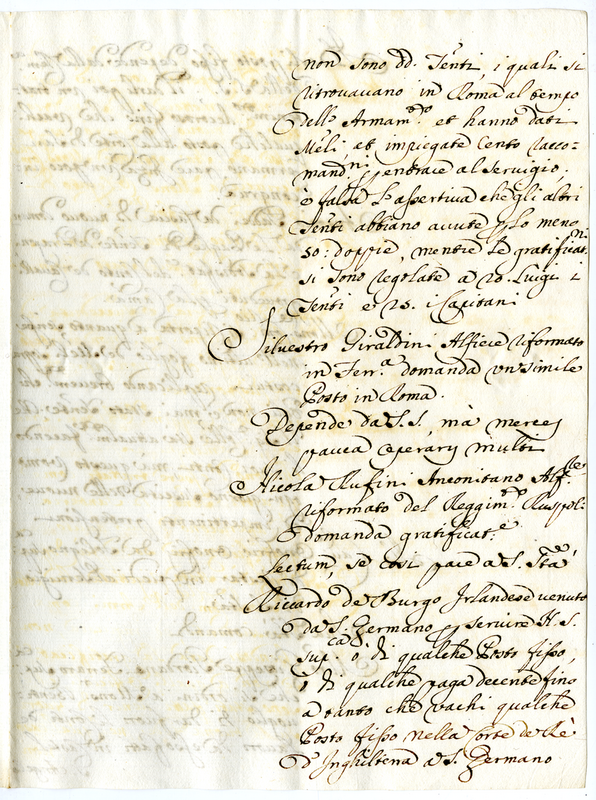 non sono dd. Tenti, i quali si
ritrovavano in Roma al tempo
dell' Armam.to et hanno dati
Meli et impiegate cento racco=
mand.ni p entrare al servigio;
è falsa l'assertiva che gli altri
Tenti abbiano avute p lo meno
50: doppie, mentre le gratificat.ni
si sono regolate a 20. Luigi i
Tenti e 25. i Capitani
Silvestro Giraldini Alfiere riformato
in Ferr.a domanda un simile
Posto in Roma.
Depende da S. S. mà merces
pauca operarij multi
Nicola Rufini Anconitano Alf.re
riformato del Reggim.to Ruspoli
domanda gratificat.e
Lectum, se così pare a S. Stà
Riccardo de Burgo Irlandese venuto
da S. Germano p servire N. S.
sup.ca ò di qualche Posto fisso,
ò di qualche paga decente fino
a tanto che vachi qualche
Posto fisso nella Corte del Rè
d'Inghilterra a S. Germano